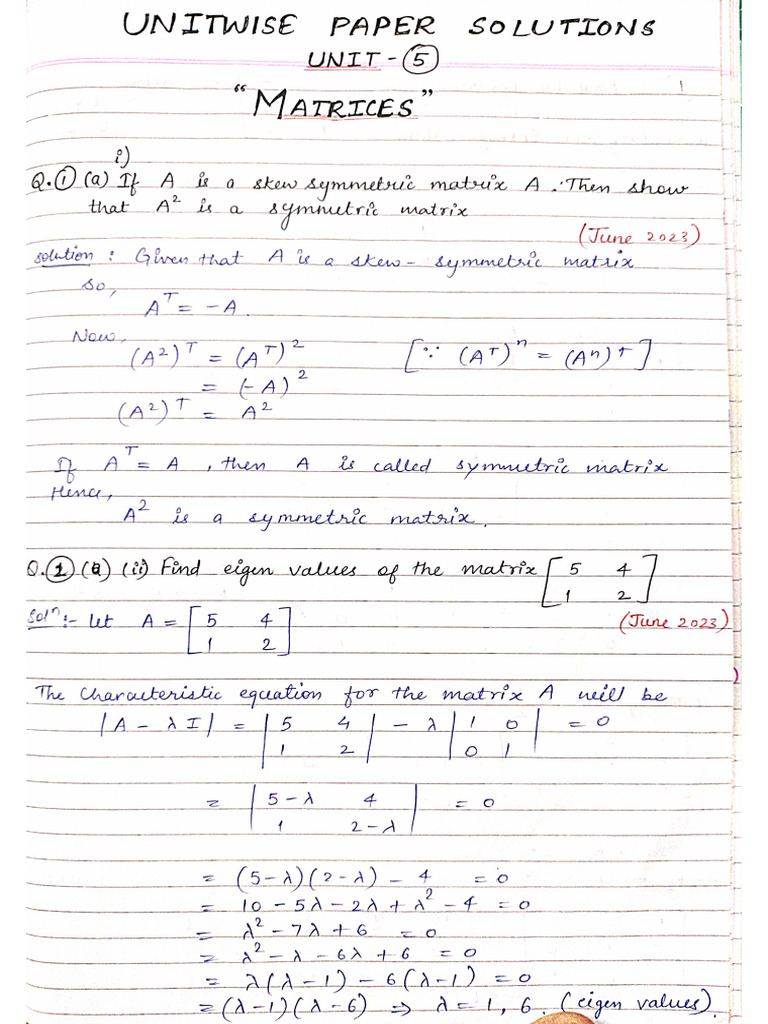 UNITWISE PAPER SOLUTIONS
UNIT - ⑤
1
"MATRICES"
i)
Q.① (a) If A is a skew symmetric matrix A. Then show
that A² is a symmetric matrix
(June 2023)
solution : Given that A is a skew-symmetric matrix
so,
Aᵀ = -A.
Now,
(A²)ᵀ = (Aᵀ)² [∵ (Aᵀ)ⁿ = (Aⁿ)ᵀ]
= (-A)²
(A²)ᵀ = A²
If Aᵀ = A , then A is called symmetric matrix
Hence,
A² is a symmetric matrix.
Q.① (a) (ii) Find eigen values of the matrix [5 4
1 2]
(June 2023)
Solⁿ:- Let A = [5 4
1 2]
The Characteristic equation for the matrix A will be
|A - λI| = |5 4
1 2| - λ |1 0
0 1| = 0
= |5-λ 4
1 2-λ| = 0
= (5-λ)(2-λ) - 4 = 0
= 10 - 5λ - 2λ + λ² - 4 = 0
= λ² - 7λ + 6 = 0
= λ² - λ - 6λ + 6 = 0
= λ(λ-1) - 6(λ-1) = 0
= (λ-1)(λ-6) ⇒ λ = 1, 6. (eigen values).